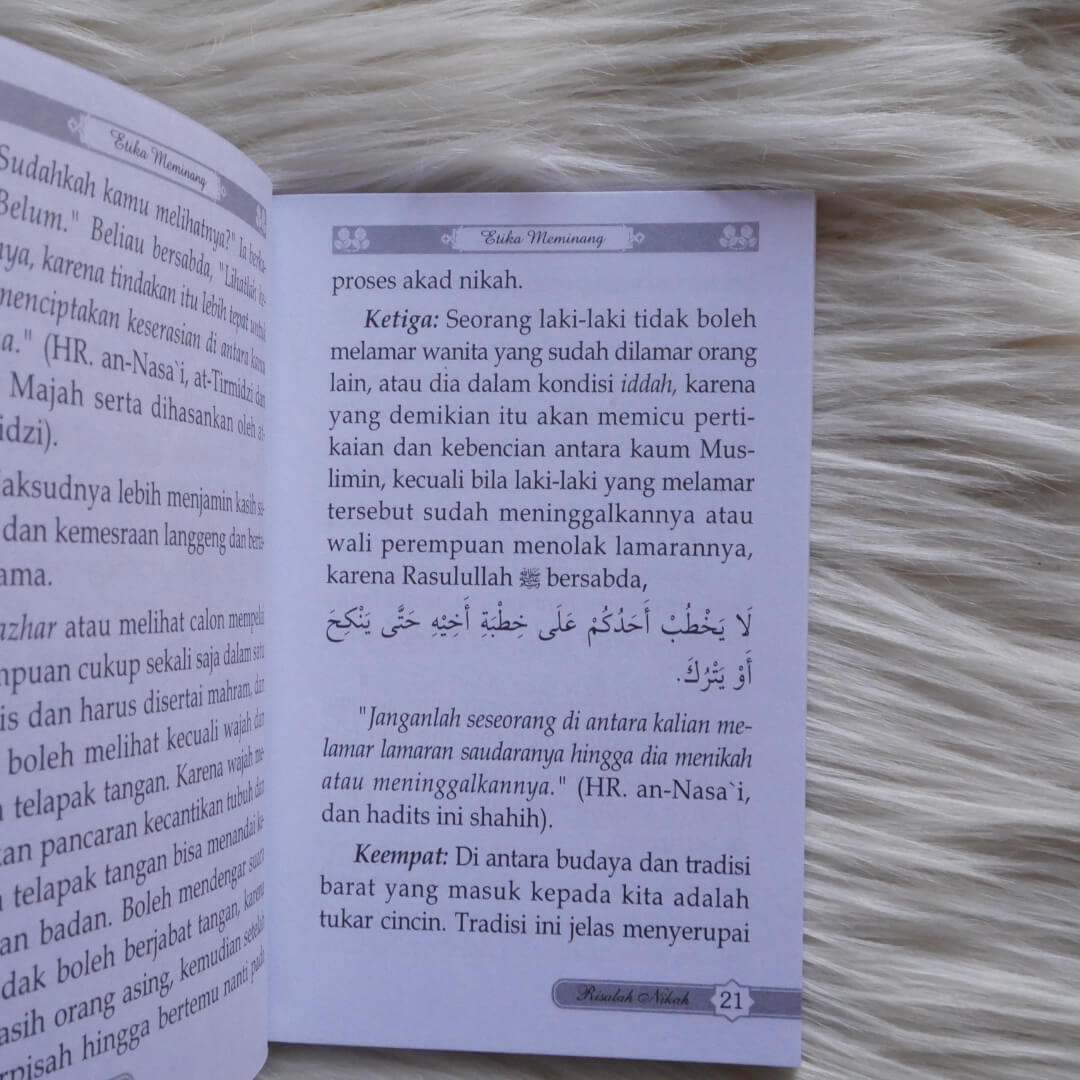 Etika Meminang
Sudahkah kamu melihatnya?" Ia berka-
Belum." Beliau bersabda, "Lihatlah
karena tindakan itu lebih tepat untuk
menciptakan keserasian di antara kamu
(HR. an-Nasa`i, at-Tirmidzi dan
Majah serta dihasankan oleh at-
idzi).
aksudnya lebih menjamin kasih se-
dan kemesraan langgeng dan
ama.
azhar atau melihat calon mempelai
mpuan cukup sekali saja dalam satu
is dan harus disertai mahram, dan
boleh melihat kecuali wajah dan
telapak tangan. Karena wajah me-
kan pancaran kecantikan tubuh dan
telapak tangan bisa menandai ke-
an badan. Boleh mendengar suara
dak boleh berjabat tangan, karena
asih orang asing, kemudian setelah
rpisah hingga bertemu nanti pada
Etika Meminang
proses akad nikah.
Ketiga: Seorang laki-laki tidak boleh
melamar wanita yang sudah dilamar orang
lain, atau dia dalam kondisi iddah, karena
yang demikian itu akan memicu perti-
kaian dan kebencian antara kaum Mus-
limin, kecuali bila laki-laki yang melamar
tersebut sudah meninggalkannya atau
wali perempuan menolak lamarannya,
karena Rasulullah ﷺ bersabda,
لَا يَخْطُبْ أَحَدُكُمْ عَلَى خِطْبَةِ أَخِيْهِ حَتَّى يَنْكِحَ
أَوْ يَتْرُكَ.
"Janganlah seseorang di antara kalian me-
lamar lamaran saudaranya hingga dia menikah
atau meninggalkannya." (HR. an-Nasa`i,
dan hadits ini shahih).
Keempat: Di antara budaya dan tradisi
barat yang masuk kepada kita adalah
tukar cincin. Tradisi ini jelas menyerupai
Risalah Nikah 21